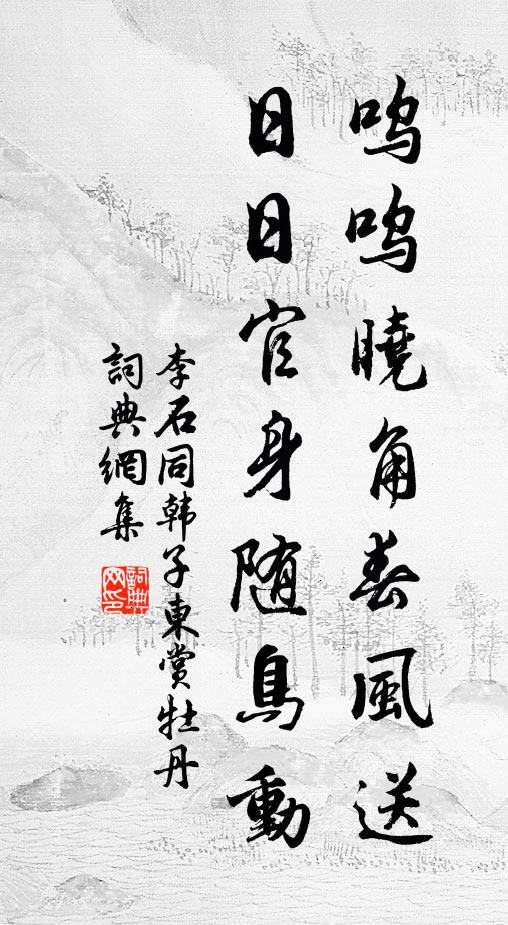 呜呜曉角春風送
日日官身随鳥動
李石同韩子東赏牡丹
詞典網集
詞典網印